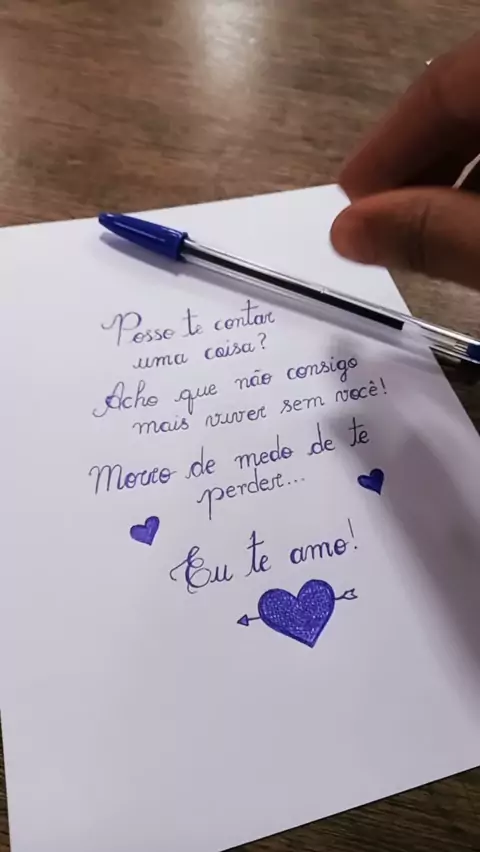 Posso te contar
uma coisa?
Acho que não consigo
mais viver sem você!
Morro de medo de te
perder...
Eu te amo!